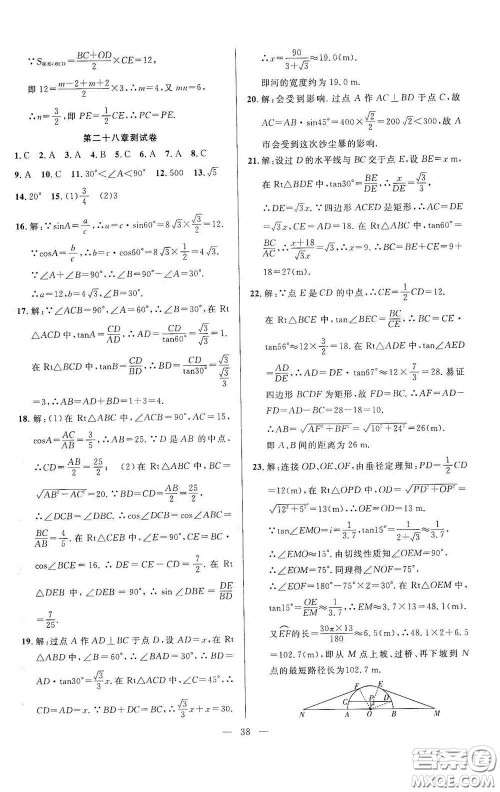 ∵S梯形OBCD=(BC+OD)/2×CE=12,
即12=(m-2+m+2)/2×3,∴m=4,又mn=6,
∴n=3/2,即PC=PE.
第二十八章测试卷
1. C 2. A 3. C 4. B 5. C 6. A 7. A 8. C
9. A 10. C 11. 90° 12. 500 13. √5
14. 20° 15. (1)3/4 (2)3
16. 解:∵sinA=a/c,∴a=c·sin60°=8√3×√3/2=12.
∵cosA=b/c,∴b=c·cos60°=8√3×1/2=4√3.
∵∠A+∠B=90°,∴∠B=90°-∠A=30°.
∴a=12,b=4√3,∠B=30°.
17. 解:∵∠ACB=90°,∠A=60°,CD⊥AB,在Rt
△ACD中,tanA=CD/AD,∴AD=CD/tan60°=√3/√3=1.
在Rt△BCD中,tanB=CD/BD,∴BD=CD/tan30°=√3/(√3/3)
=3.∴AB=AD+BD=1+3=4.
18. 解:(1)在Rt△ABC中,∠ACB=90°,AC=15,
cosA=AC/AB=3/5,∴AB=25.∵D是AB的中点,
∴CD=AB/2=25/2; (2)在Rt△ABC中,BC=
√(AB²-AC²)=20.∵CD=BD=AB/2=25/2,
∴∠DCB=∠ABC,∴cos∠DCB=cos∠ABC=
BC/AB=4/5.在Rt△CEB中,∠E=90°,CE=BC·
cos∠BCE=16.∴DE=CE-CD=7/2.在Rt
△DEB中,∠DEB=90°,∴sin∠DBE=DE/BD
=7/25.
19. 解:过点A作AD⊥BC于点D,设AD=x,在Rt
△ABD中,∠ADB=90°,∠B=30°,∴BD=
AD·tan30°=√3/3x.在Rt△ADC中,∠C=45°,∴
CD=AD=x.∵BC=30,∴√3/3x+x=30.
∴x=90/(3+√3)≈19.0(m).
即河的宽度约为19.0m.
20. 解:会受到影响.过点A作AC⊥BD于点C,故
AC=AB·sin45°=400×√2/2≈280<300,故A
市会受到这次沙尘暴的影响.
21. 解:设过D的水平线与BC交于点E,设BE=x m,
在Rt△BDE中,tan30°=BE/DE,∴x/DE=√3/3,
∴DE=√3x.∵四边形ACED是矩形,∴AC=DE
=√3x,CE=AD=18.在Rt△ABC中,tan60°=
BC/AC,∴(x+18)/(√3x)=√3.∴x=9.∴BC=BE+CE=9+
18=27(m).
22. 解:∵点E是CD的中点,∴CE=1/2CD=12.
∵在Rt△BCE中,tan∠BEC=BC/CE,∴BC=
tan56°≈12×3/2=18.在Rt△ADE中,tan∠AED=
AD/DE,∴AD=DE·tan67°≈12×7/3=28.易证
四边形BCDF为矩形.故FD=BC.∴AF=AD-
FD=AD-BC=28-18=10.
∴AB=√(AF²+BF²)=√(10²+24²)=26(m).
即A、B间的距离为26m.
23. 解:连接OD、OE、OF,由垂径定理知:PD=1/2CD
=12(m),在Rt△OPD中,OD=√(PD²+OP²)=
√(12²+5²)=13(m),∴OE=OD=13(m).
∵tan∠EMO=i=1/3.7,tan15°=1/(2+√3)≈1/3.7,
∴∠EMO=15°.由切线性质知∠OEM=90°,
∴∠EOM=75°.同理得∠NOF=75°,
∴∠EOF=180°-75°×2=30°.在Rt△OEM中,
tan15°=OE/EM≈1/3.7,∴EM≈3.7×13=48.1(m),
又EF的长=30π×13/180≈6.5(m),∴48.1×2+6.5
=102.7(m),即从M点上坡、过桥、再下坡到N
点的最短路径长为102.7m.
F E
C P D
N A O B M
— 38 —